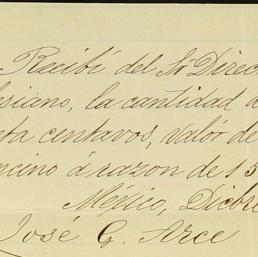 Recibí del Sr. Direc
esiano, la cantidad d
ta centavos, valor de
ncino á razon de 15
México, Dicbre
José G. Arce